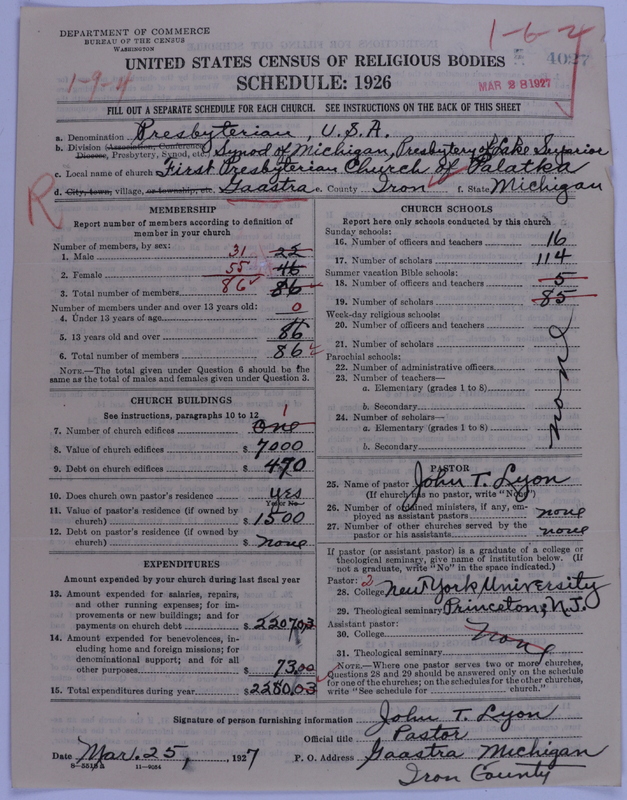 DEPARTMENT OF COMMERCE
BUREAU OF THE CENSUS
WASHINGTON
1-6-4
4027
1-9-4
UNITED STATES CENSUS OF RELIGIOUS BODIES
SCHEDULE: 1926
MAR 28 1927
FILL OUT A SEPARATE SCHEDULE FOR EACH CHURCH. SEE INSTRUCTIONS ON THE BACK OF THIS SHEET
a. Denomination Presbyterian, U.S.A.
b. Division (Association, Conference, Diocese, Presbytery, Synod, etc.) Synod of Michigan, Presbytery of Lake Superior
c. Local name of church First Presbyterian Church of Palatka
R
d. City, town, village, or township, etc. Gaastra e. County Iron f. State Michigan
MEMBERSHIP
Report number of members according to definition of
member in your church
Number of members, by sex:
1. Male 31
2. Female 55 46
3. Total number of members 86 86
Number of members under and over 13 years old:
4. Under 13 years of age 0
5. 13 years old and over 86
6. Total number of members 86
NOTE.—The total given under Question 6 should be the
same as the total of males and females given under Question 3.
CHURCH BUILDINGS
See instructions, paragraphs 10 to 12
7. Number of church edifices One 1
8. Value of church edifices $ 7000
9. Debt on church edifices $ 470
10. Does church own pastor's residence yes
Yes or No
11. Value of pastor's residence (if owned by
church) $ 1500
12. Debt on pastor's residence (if owned by
church) $ none
EXPENDITURES
Amount expended by your church during last fiscal year
13. Amount expended for salaries, repairs,
and other running expenses; for im-
provements or new buildings; and for
payments on church debt $ 2207.03
14. Amount expended for benevolences, in-
cluding home and foreign missions; for
denominational support; and for all
other purposes $ 73.00
15. Total expenditures during year $ 2280.03
CHURCH SCHOOLS
Report here only schools conducted by this church
Sunday schools:
16. Number of officers and teachers 16
17. Number of scholars 114
Summer vacation Bible schools:
18. Number of officers and teachers 5
19. Number of scholars 85
Week-day religious schools:
20. Number of officers and teachers
21. Number of scholars
Parochial schools:
22. Number of administrative officers
23. Number of teachers—
a. Elementary (grades 1 to 8)
b. Secondary
24. Number of scholars—
a. Elementary (grades 1 to 8)
b. Secondary
none
PASTOR
25. Name of pastor John T. Lyon
(If church has no pastor, write "None")
26. Number of ordained ministers, if any, em-
ployed as assistant pastors none
27. Number of other churches served by the
pastor or his assistants none
If pastor (or assistant pastor) is a graduate of a college or
theological seminary, give name of institution below. (If
not a graduate, write "No" in the space indicated.)
Pastor: 2
28. College New York University
29. Theological seminary Princeton, N.J.
Assistant pastor:
30. College none
31. Theological seminary
NOTE.—Where one pastor serves two or more churches,
Questions 28 and 29 should be answered only on the schedule
for one of the churches; on the schedules for the other churches,
write "See schedule for church."
Signature of person furnishing information John T. Lyon
Official title Pastor
Date Mar. 25, 1927 P. O. Address Gaastra Michigan
8-5518a 11-9054 Iron County